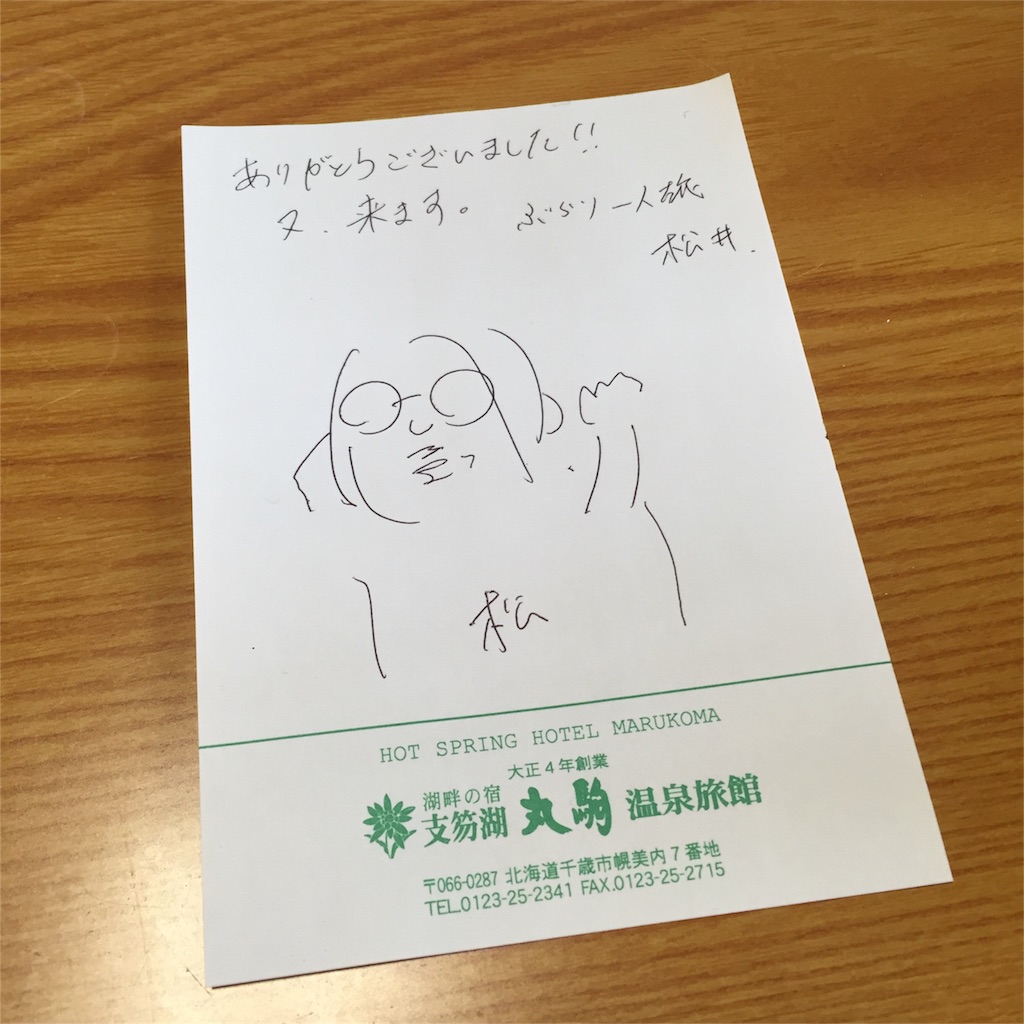 ありがとうございました!!
又、来ます。 ぶらり一人旅
松井.
松
HOT SPRING HOTEL MARUKOMA
大正4年創業
湖畔の宿
支笏湖 丸駒 温泉旅館
〒066-0287 北海道千歳市幌美内7番地
TEL.0123-25-2341 FAX.0123-25-2715